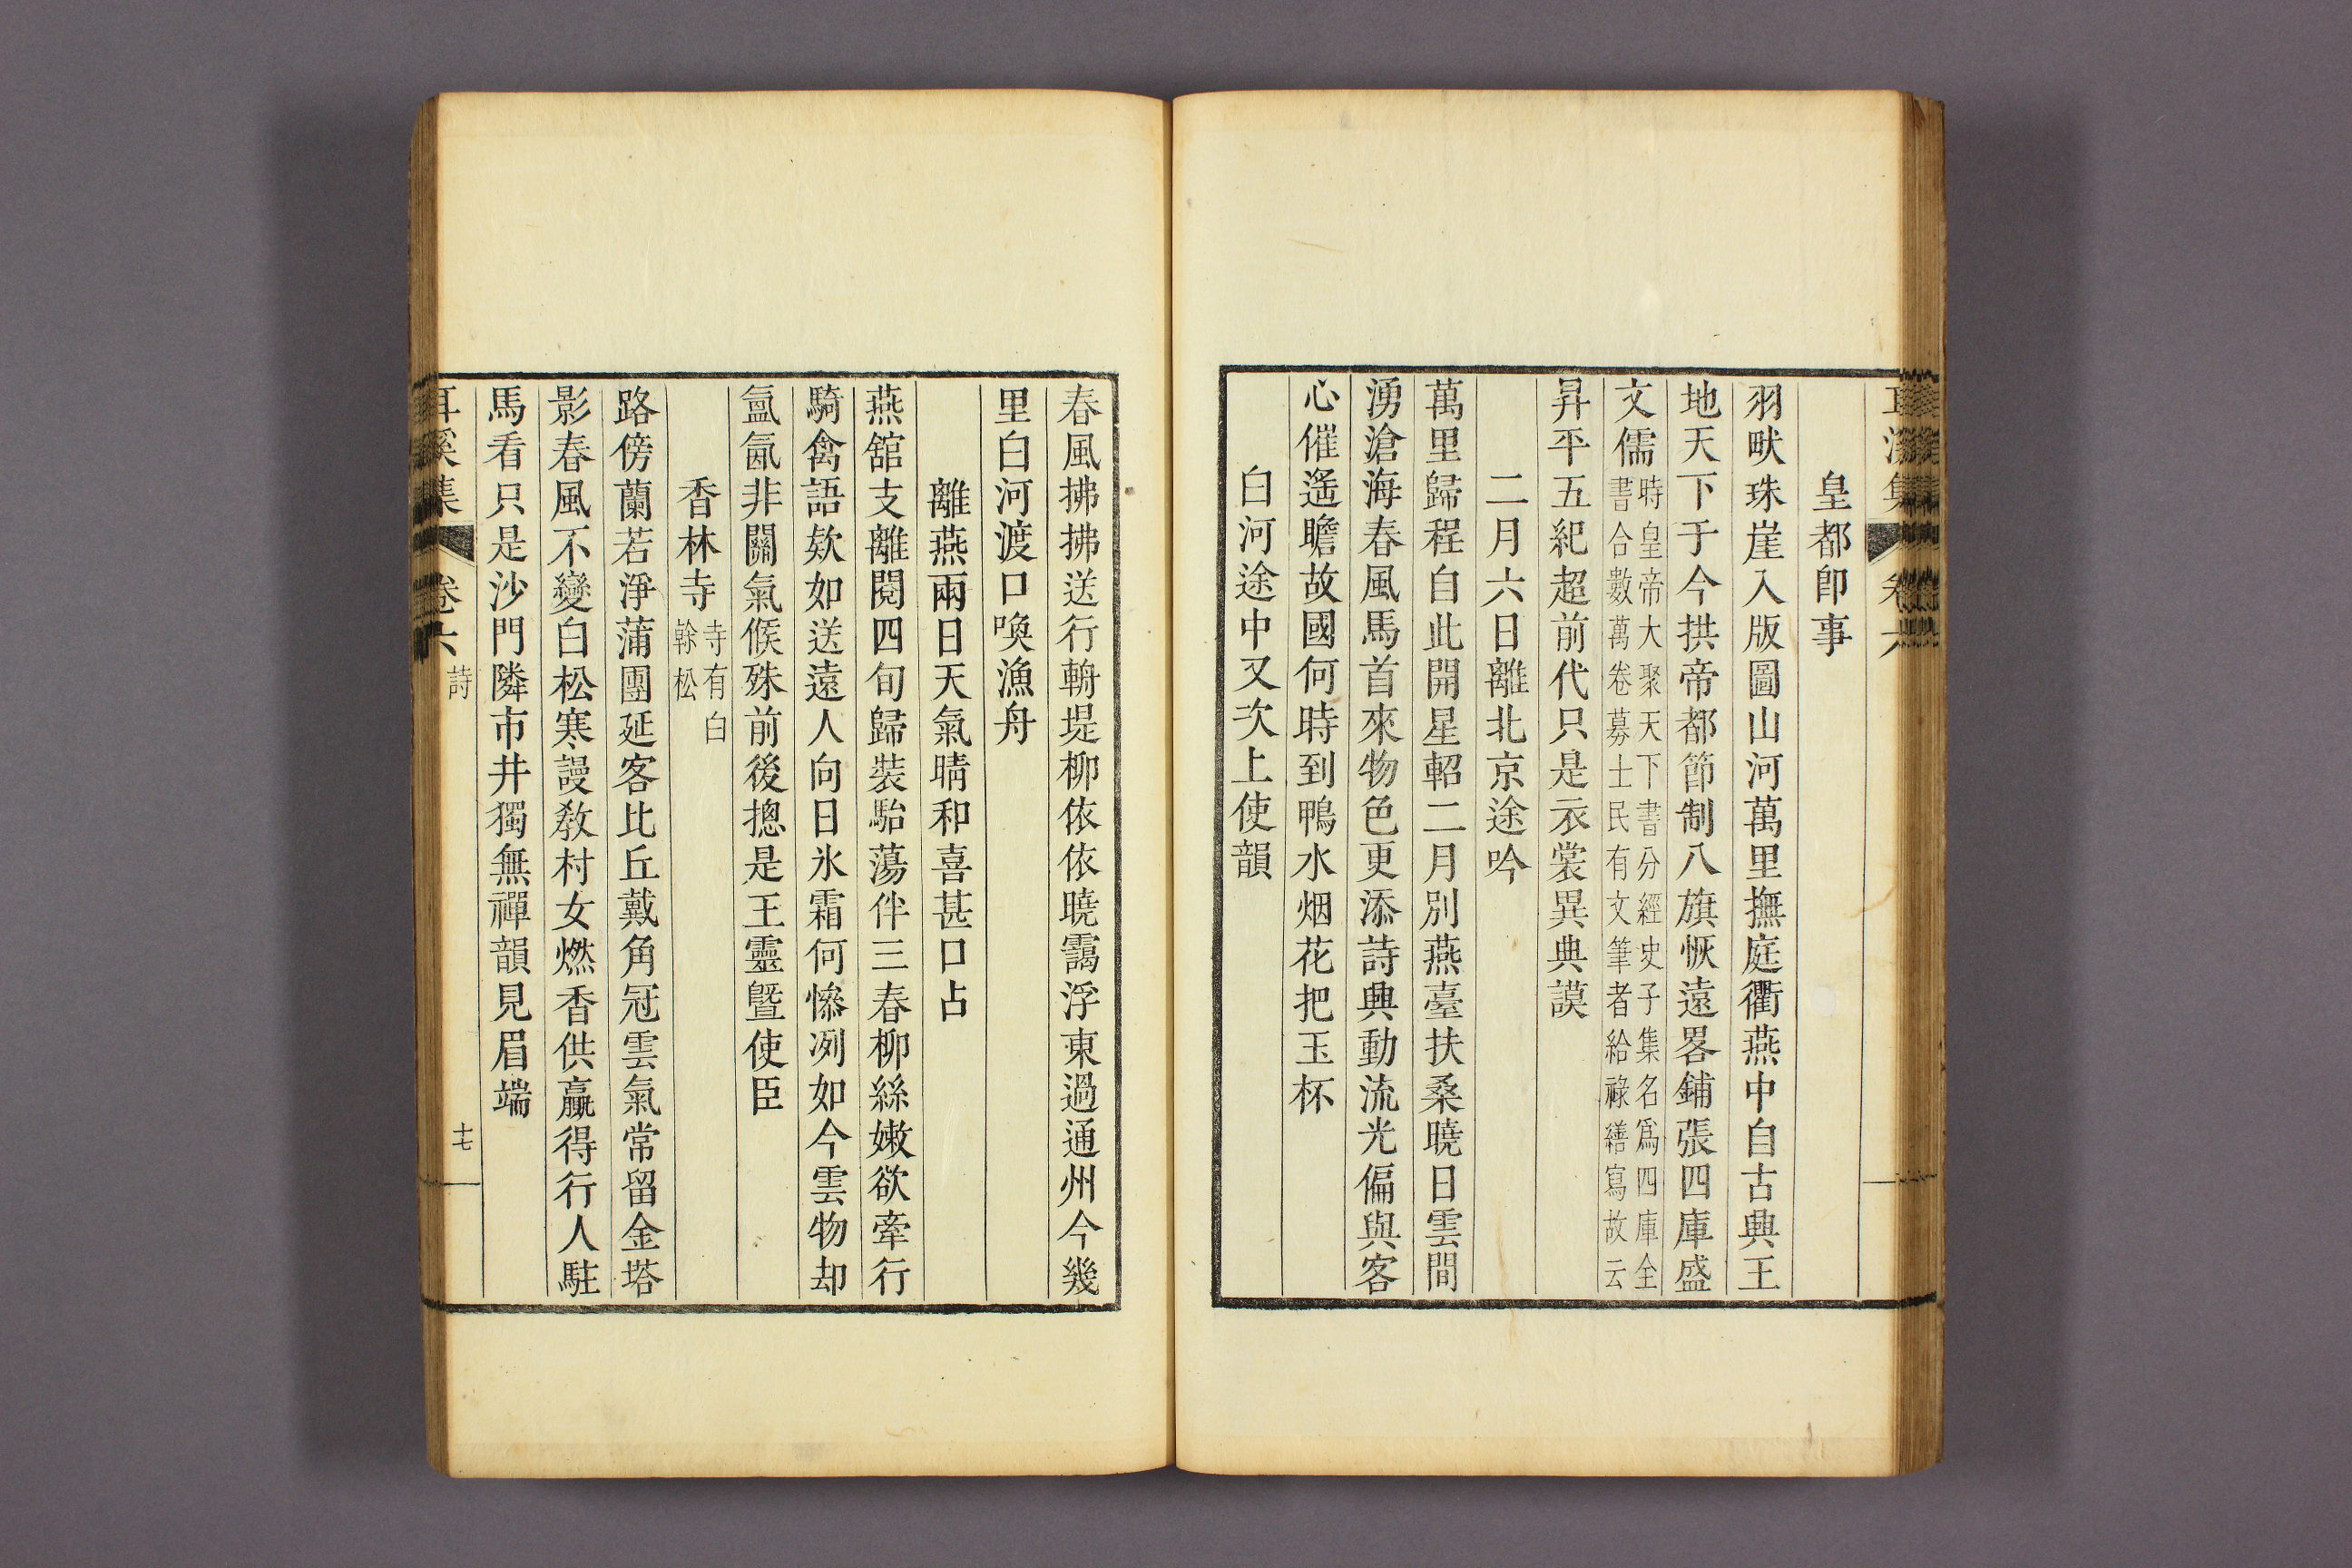 皇都卽事
羽畎珠崖入版圖山河萬里撫庭衢燕中自古興王
地天下于今拱帝都節制八旗恢遠畧鋪張四庫盛
文儒時皇帝大聚天下書分經史子集名爲四庫全
書合數萬卷募士民有文筆者給祿繕寫故云
昇平五紀超前代只是衣裳異典謨
二月六日離北京途吟
萬里歸程自此開星軺二月別燕臺扶桑曉日雲間
湧滄海春風馬首來物色更添詩興動流光偏與客
心催遙瞻故國何時到鴨水烟花把玉杯
白河途中又次上使韻
春風拂拂送行輈堤柳依依曉靄浮東過通州今幾
里白河渡口喚漁舟
離燕兩日天氣晴和喜甚口占
燕舘支離閱四旬歸裝駘蕩伴三春柳絲嫩欲牽行
騎禽語欸如送遠人向日氷霜何慘冽如今雲物却
氳氤非關氣候殊前後摠是王靈曁使臣
香林寺寺有白
榦松
路傍蘭若淨蒲團延客比丘戴角冠雲氣常留金塔
影春風不變白松寒謾敎村女燃香供贏得行人駐
馬看只是沙門隣市井獨無禪韻見眉端
耳溪集 卷六 詩 十七